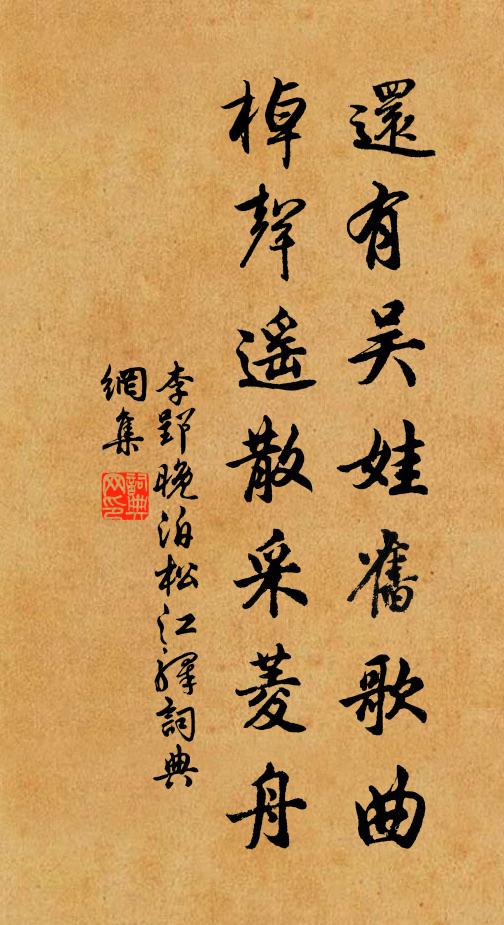 還有吳娃舊歌曲
棹聲遥散采菱舟
李郢晚泊松江驛詞典
網集
詞典
网印